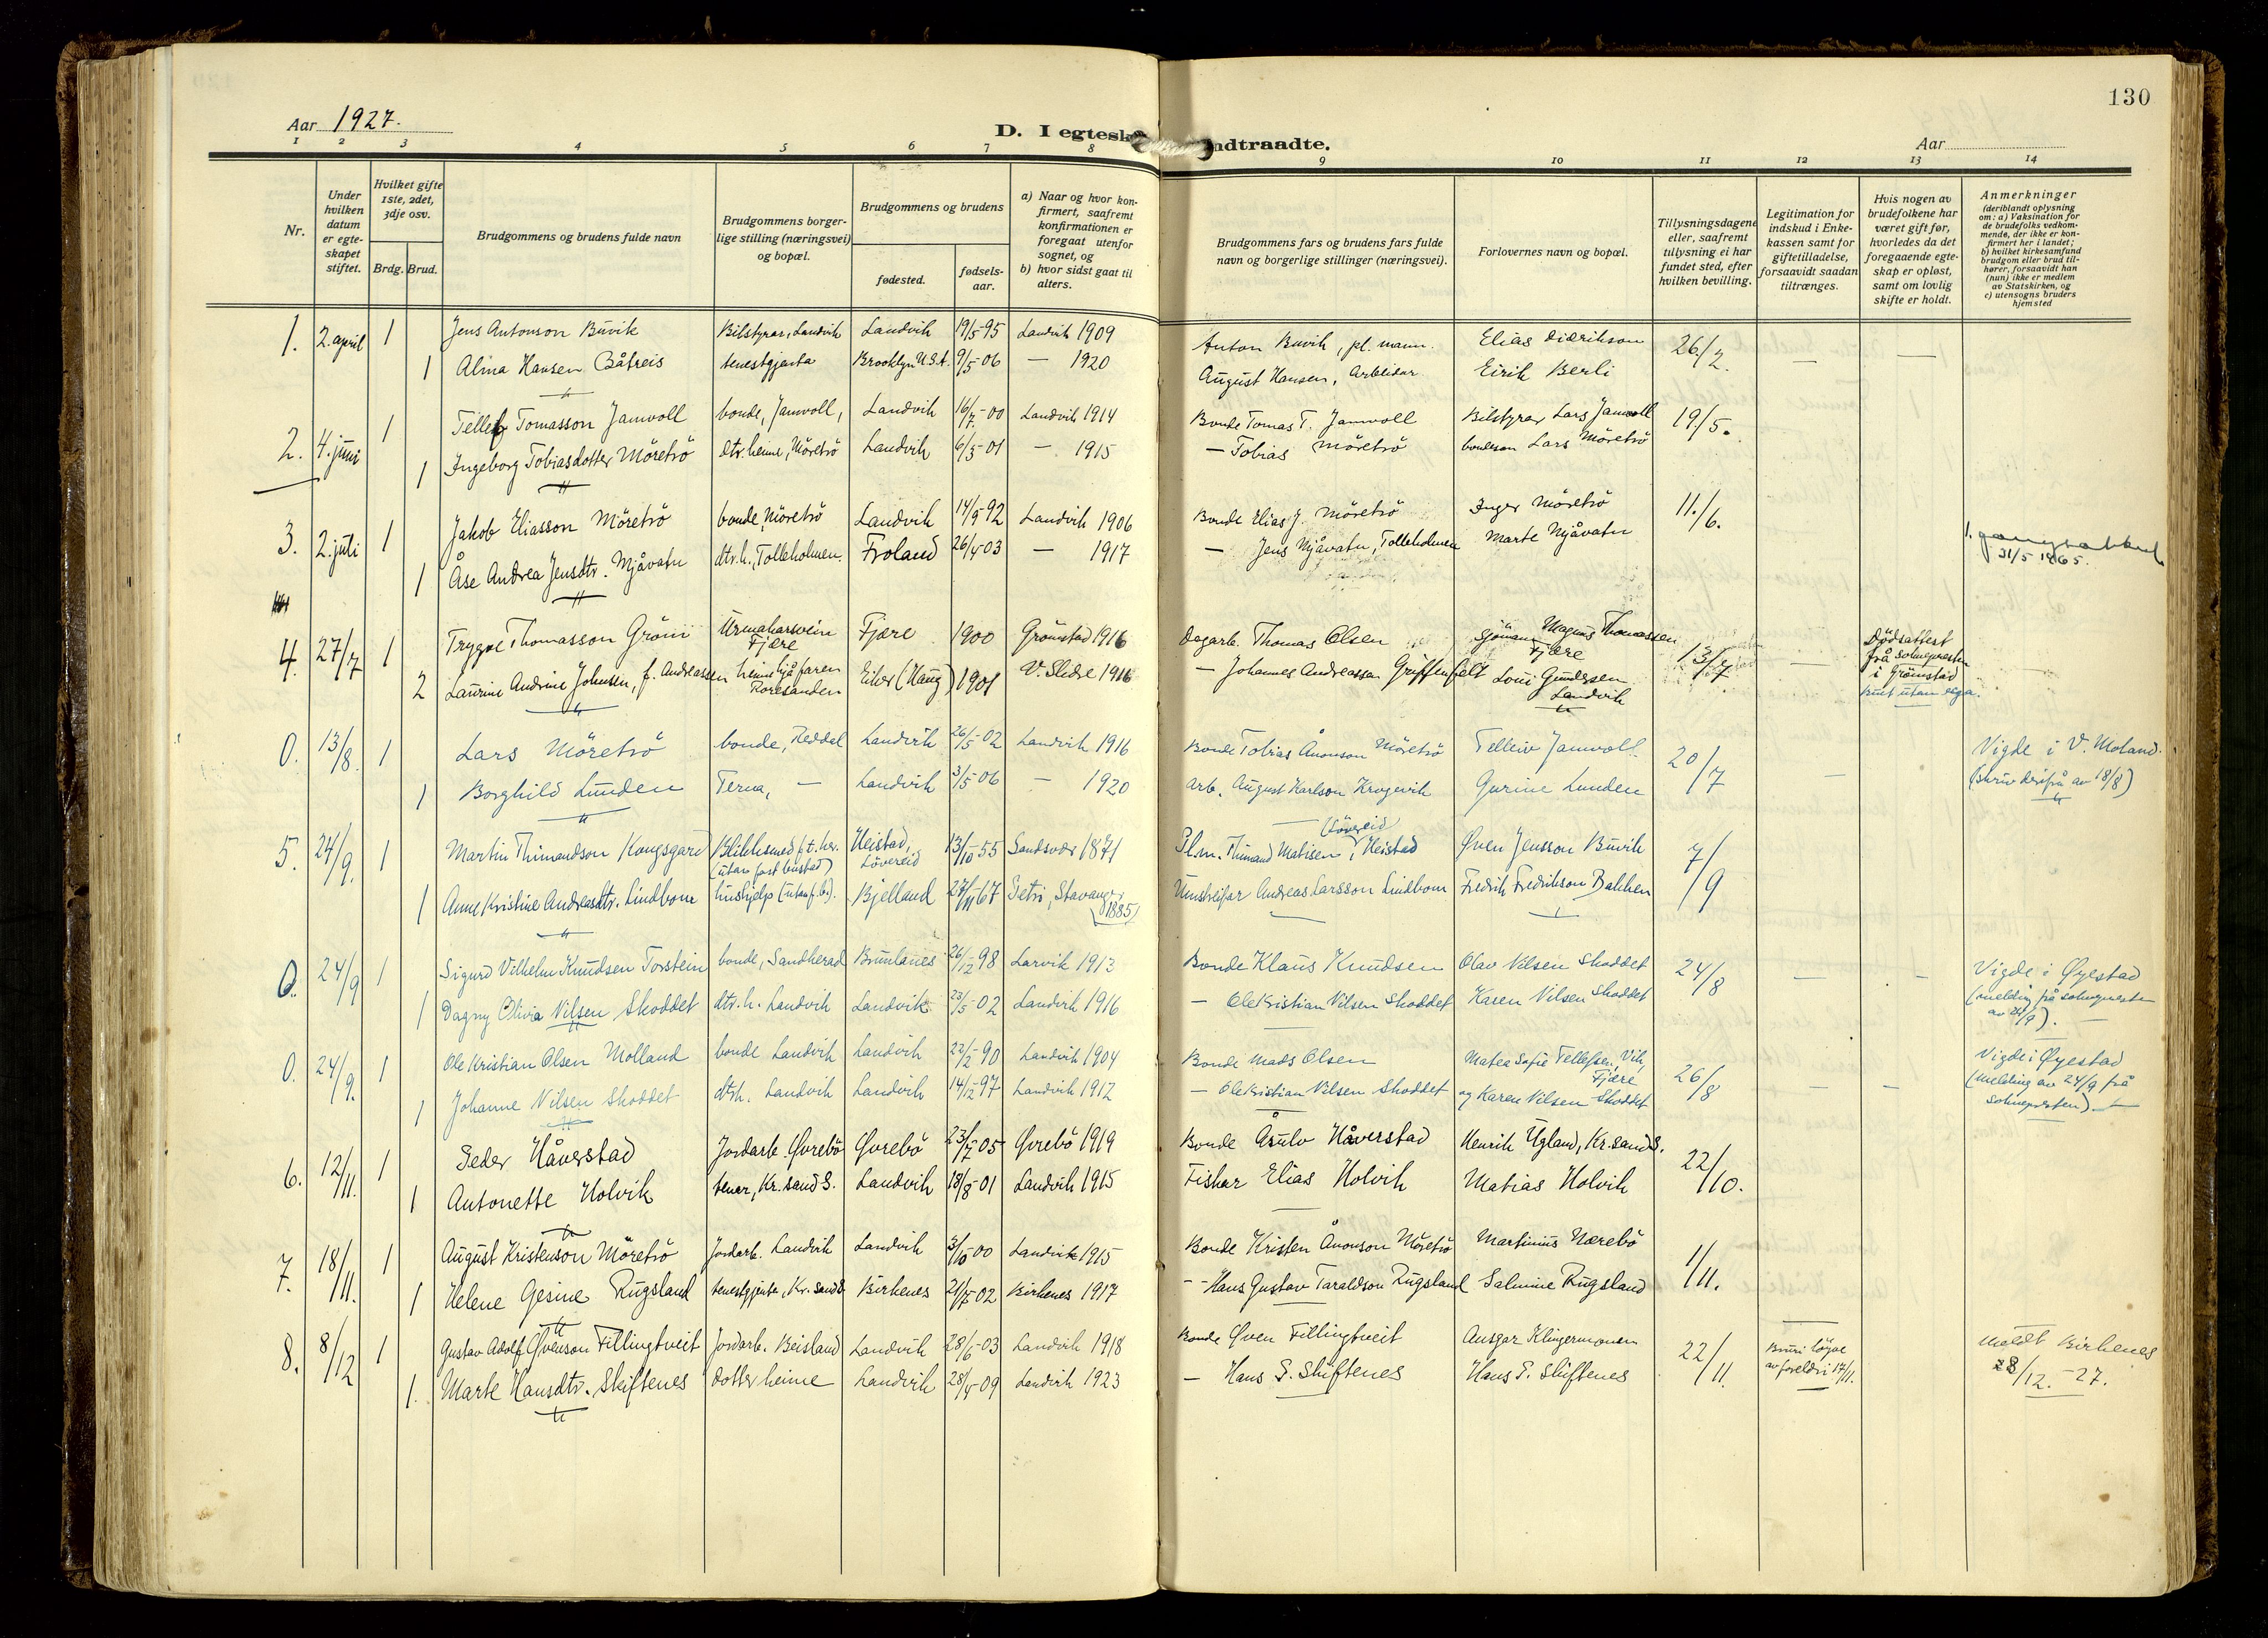 130
Aar 1927.
D. I egtesk
ndtraadte.
Aar
1 2 3 4 5 6 7 8 9 10 11 12 13 14
Nr.
Under hvilken datum er egteskapet stiftet.
Hvilket gifte 1ste, 2det, 3dje osv.
Brdg. Brud.
Brudgommens og brudens fulde navn
Brudgommens borgerlige stilling (næringsvei) og bopæl.
Brudgommens og brudens
fødested.
fødselsaar.
a) Naar og hvor konfirmert, saafremt konfirmationen er foregaat utenfor sognet, og
b) hvor sidst gaat til alters.
Brudgommens fars og brudens fars fulde navn og borgerlige stillinger (næringsvei).
Forlovernes navn og bopæl.
Tillysningsdagene eller, saafremt tillysning ei har fundet sted, efter hvilken bevilling.
Legitimation for indskud i Enkekassen samt for giftetilladelse, forsaavidt saadan tiltrænges.
Hvis nogen av brudefolkene har været gift før, hvorledes da det foregaaende egteskap er opløst, samt om lovlig skifte er holdt.
Anmerkninger (deriblandt oplysning om: a) Vaksination for de brudefolks vedkommende, der ikke er konfirmert her i landet; b) hvilket kirkesamfund brudgom eller brud tilhører, forsaavidt han (hun) ikke er medlem av Statskirken, og c) utensogns bruders hjemsted
1. 2. april 1 Jens Antonson Buvik Bilstyrar, Landvik Landvik 19/5-95 Landvik 1909 Anton Buvik, pl. mann. Elias Didrikson 26/2. — —
1 Alma Hansen Båtreis tenestgjenta Brooklyn U.S.A. 9/5-06 — 1920 August Hansen, Arbeidar Eirik Berli
2. 4. juni 1 Tellef Tomasson Jamvoll bonde, Jamvoll, Landvik 16/7-00 Landvik 1914 Bonde Tomas T. Jamvoll Bilstyrar Lars Jamvoll 19/5.
1 Ingeborg Tobiasdotter Möretrö dtr. heime, Möretrö Landvik 6/5-01 — 1915 — Tobias Möretrö bondeson Lars Möretrö
3. 2. juli 1 Jakob Eliasson Möretrö bonde, Möretrö Landvik 14/9-92 Landvik 1906 Bonde Elias J. Möretrö Inger Möretrö 11./6.
1 Åse Andrea Jensdtr. Mjåvatn dtr. h., Tolleholmen Froland 26/4-03 — 1917 — Jens Mjåvatn, Tolleholmen Marte Mjåvatn
31/5 1965.
4. 27/7 1 Trygve Thomasson Grönn Urmakarsvein Fjære Fjære 1900 Grömstad 1916 Dagarb. Thomas Olsen Sjömann Magnus Thomassen Fjære 13/7 — Dödsattest frå soknepresten i Grömstad —
2 Laurine Andrine Johnsen, f. Andreassen heime hjå faren Roresanden Eiker (Haug) 1901 V. Slidre 1916 — Johannes Andreassen Griffenfelt Loui Gundersen Landvik
0. 13/8. 1 Lars Möretrö bonde, Reddal Landvik 26/5-02 Landvik 1916 Bonde Tobias Ånonson Möretrö Telleiv Jamvoll 20/7 — Vigde i V. Moland.
1 Borghild Lunden Terna, — Landvik 3/5-06 — 1920 arb. August Karlson Krogevik Gurine Lunden (skriv derifrå av 18/8)
5. 24/9. 1 Martin Thimandson Kongsgard Blikksmed p.t. her. (utan fast bustad) Heistad, Lövereid 13/10 55 Sandsvær 1871 Pl.m. Thimand Matisen i Heistad (Lövereid) Øven Jensson Buvik 7/9
1 Anne Kristine Andreasdtr. Lindbom hushjelp (utan f.b.). Bjelland 27/11 67 Petri, Stavanger (1885) Umstreifar Andreas Larsson Lindbom Fredrik Fredrikson Bakken
0. 24/9 1 Sigurd Vilhelm Knudsen Torstein bonde, Sandherad Brunlanes 26/12 98 Larvik 1913 Bonde Klaus Knudsen Olav Nilsen Skoddet 24/8 — — Vigde i Øyestad
1 Dagny Olivia Nilsen Skoddet dtr. h. Landvik Landvik 23/5-02 Landvik 1916 — Ole Kristian Nilsen Skoddet Karen Nilsen Skoddet (melding frå soknepresten av 24/9).
0. 24/9. 1 Ole Kristian Olsen Molland bonde Landvik Landvik 22/2-90 Landvik 1904 Bonde Mads Olsen Matea Sofie Tellefsen, Vik, Fjære 26/8 — — Vigde i Øyestad
1 Johanne Nilsen Skoddet dtrh. Landvik Landvik 14/12 97 Landvik 1912 — Ole Kristian Nilsen Skoddet og Karen Nilsen Skoddet (melding av 24/9 frå soknepresten).
6. 12/11. 1 Peder Håverstad Jordarb. Øvrebö Øvrebö 23/7-05 Øvrebö 1919 Bonde Åsulv Håverstad Henrik Ugland, Kr.sand S. 22/10.
1 Antonette Holvik tenar, Kr.sand S. Landvik 18/8-01 Landvik 1915 Fiskar Elias Holvik Matias Holvik
7. 18/11. 1 August Kristenson Möretrö Jordarb. Landvik Landvik 3/10 00 Landvik 1915 Bonde Kristen Ånonson Möretrö Martinius Nærebö 1/11.
1 Helene Gesine Rugsland tenestgjenta, Kr. sand S Birkenes 21/7-02 Birkenes 1917 — Hans Gustav Taraldson Rugsland Salmine Rugsland
8. 8/12 1 Gustav Adolf Øvenson Fillingtveit Jordarb. Beisland Landvik 28/6-03 Landvik 1918 Bonde Øven Fillingtveit Ansgar Klingermonen 22/11. Bruri löyve av foreldri 17/11. Meldt Birkenes
1. Marte Hansdtr. Skiftenes dotter heime Landvik 28/4-09 Landvik 1923 — Hans S. Skiftenes Hans S. Skiftenes 28/12.-27.